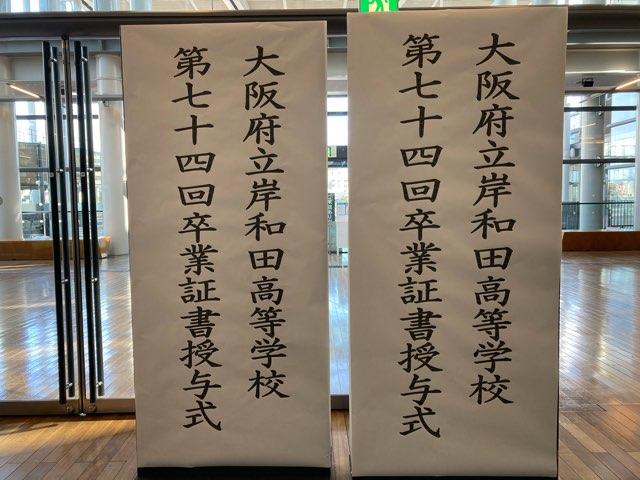 大阪府立岸和田高等学校
第七十四回卒業証書授与式
大阪府立岸和田高等学校
第七十四回卒業証書授与式